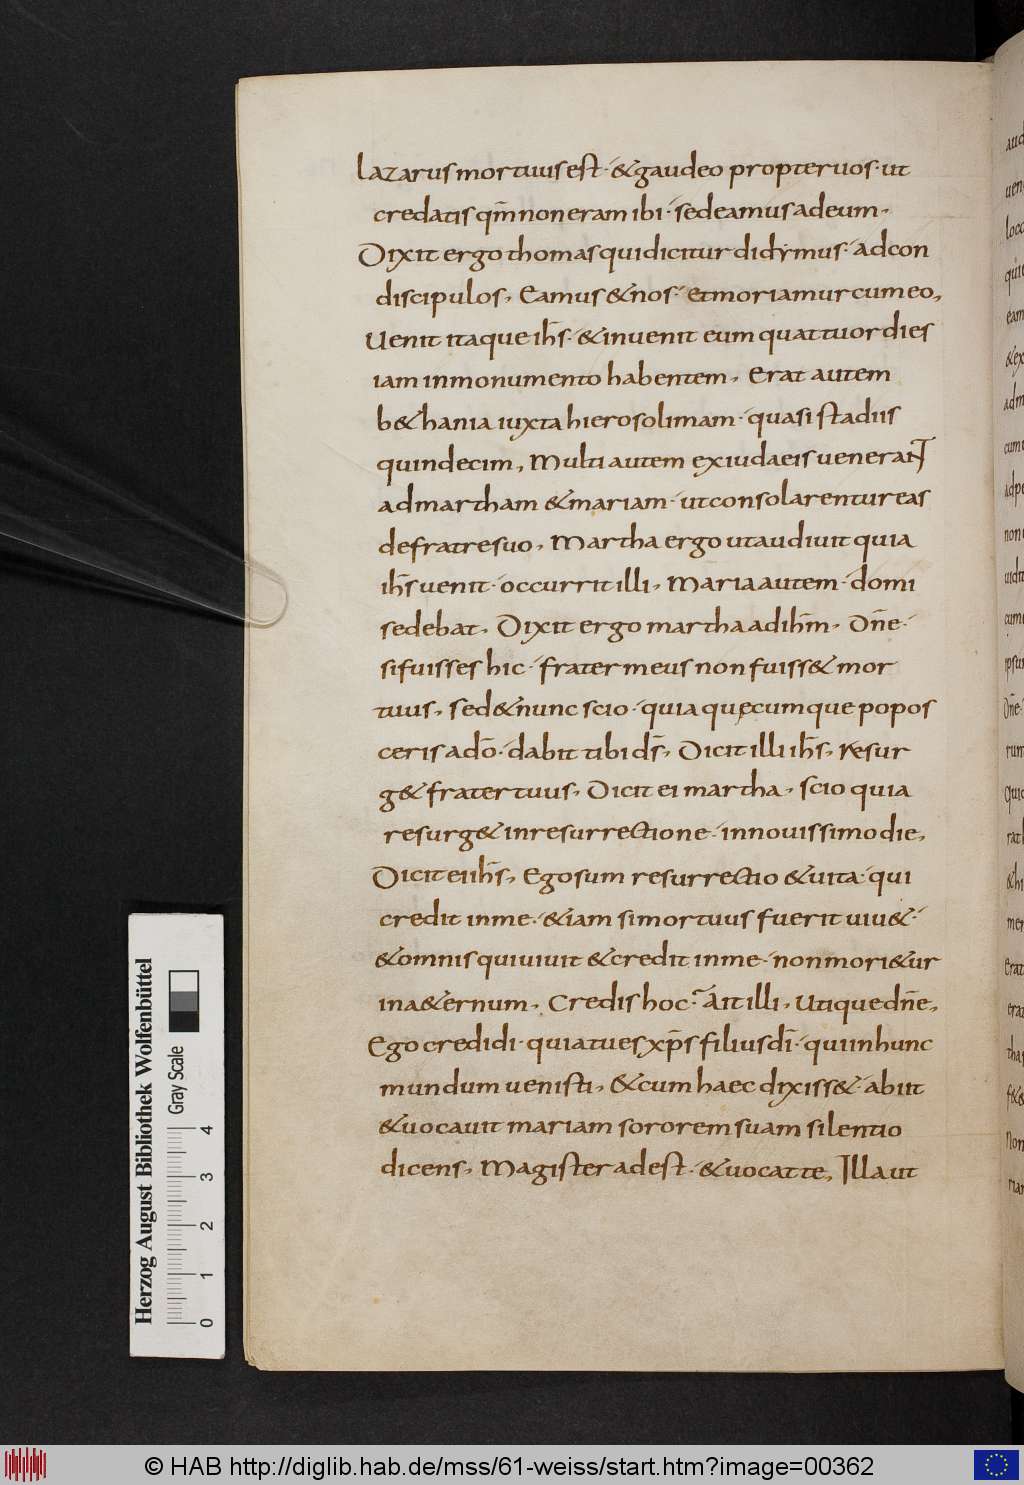 lazarus mortuus est · & gaudeo propter uos · ut
credatis qm̄ non eram ibi · sed eamus ad eum ·
Dixit ergo thomas qui dicitur didẏmus · ad con
discipulos, Eamus & nos · et moriamur cum eo,
Uenit itaque ih̄s · & inuenit eum quattuor dies
iam in monumento habentem, Erat autem
b&hania iuxta hierosolimam · quasi stadiis
quindecim, Multi autem ex iudaeis uenerant
ad martham & mariam · ut consolarentur eas
de fratre suo, Martha ergo ut audiuit quia
ih̄s uenit · occurrit illi, Maria autem · domi
sedebat, Dixit ergo martha ad ih̄m, Dn̄e ·
si fuisses hic · frater meus non fuiss& mor
tuus, sed & nunc scio · quia quęcumque popos
ceris a dō · dabit tibi ds̄, Dicit illi ih̄s, Resur
g& frater tuus, Dicit ei martha, scio quia
resurg& in resurrectione · in nouissimo die,
Dicit ei ih̄s, Ego sum resurrectio & uita · qui
credit in me · &iam si mortuus fuerit uiu& ·
& omnis qui uiuit & credit in me · non mori&ur
in a&ernum, Credis hoc? Ait illi, Utique dn̄e,
Ego credidi · quia tu es xp̄s filius dī · qui in hunc
mundum uenisti, & cum haec dixiss& · abiit
& uocauit mariam sororem suam silentio
dicens, Magister adest · & uocat te, Illa ut
Herzog August Bibliothek Wolfenbüttel
Gray Scale
0 1 2 3 4
© HAB http://diglib.hab.de/mss/61-weiss/start.htm?image=00362